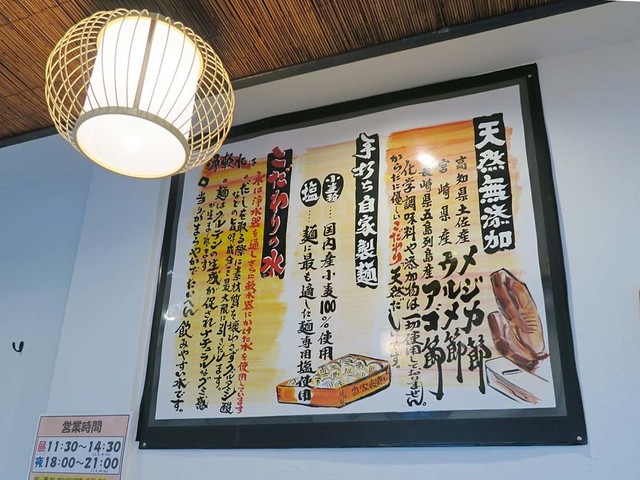 天然無添加
高知県土佐産 メジカ節
宮崎県産 ウルメ節
長崎県五島列島産 アゴ節
化学調味料や添加物は一切使用しておりません。
からだに優しいこだわり天然だしです。
手打ち自家製麺
小麦粉…国内産小麦100%使用
塩…麺に最も適した麺専用塩使用
こだわりの水
水は浄水器を通しさらに軟水器にかけた水を使用しています
だしを取る際に素材の
などの旨味成分を最大限に引きだします。
麺はグルテンの生成が促されナチュラルなコシ感
が生まれます。
当りがまろやかでたいへん飲みやすい水です。
営業時間
昼11:30~14:30
夜18:00~21:00